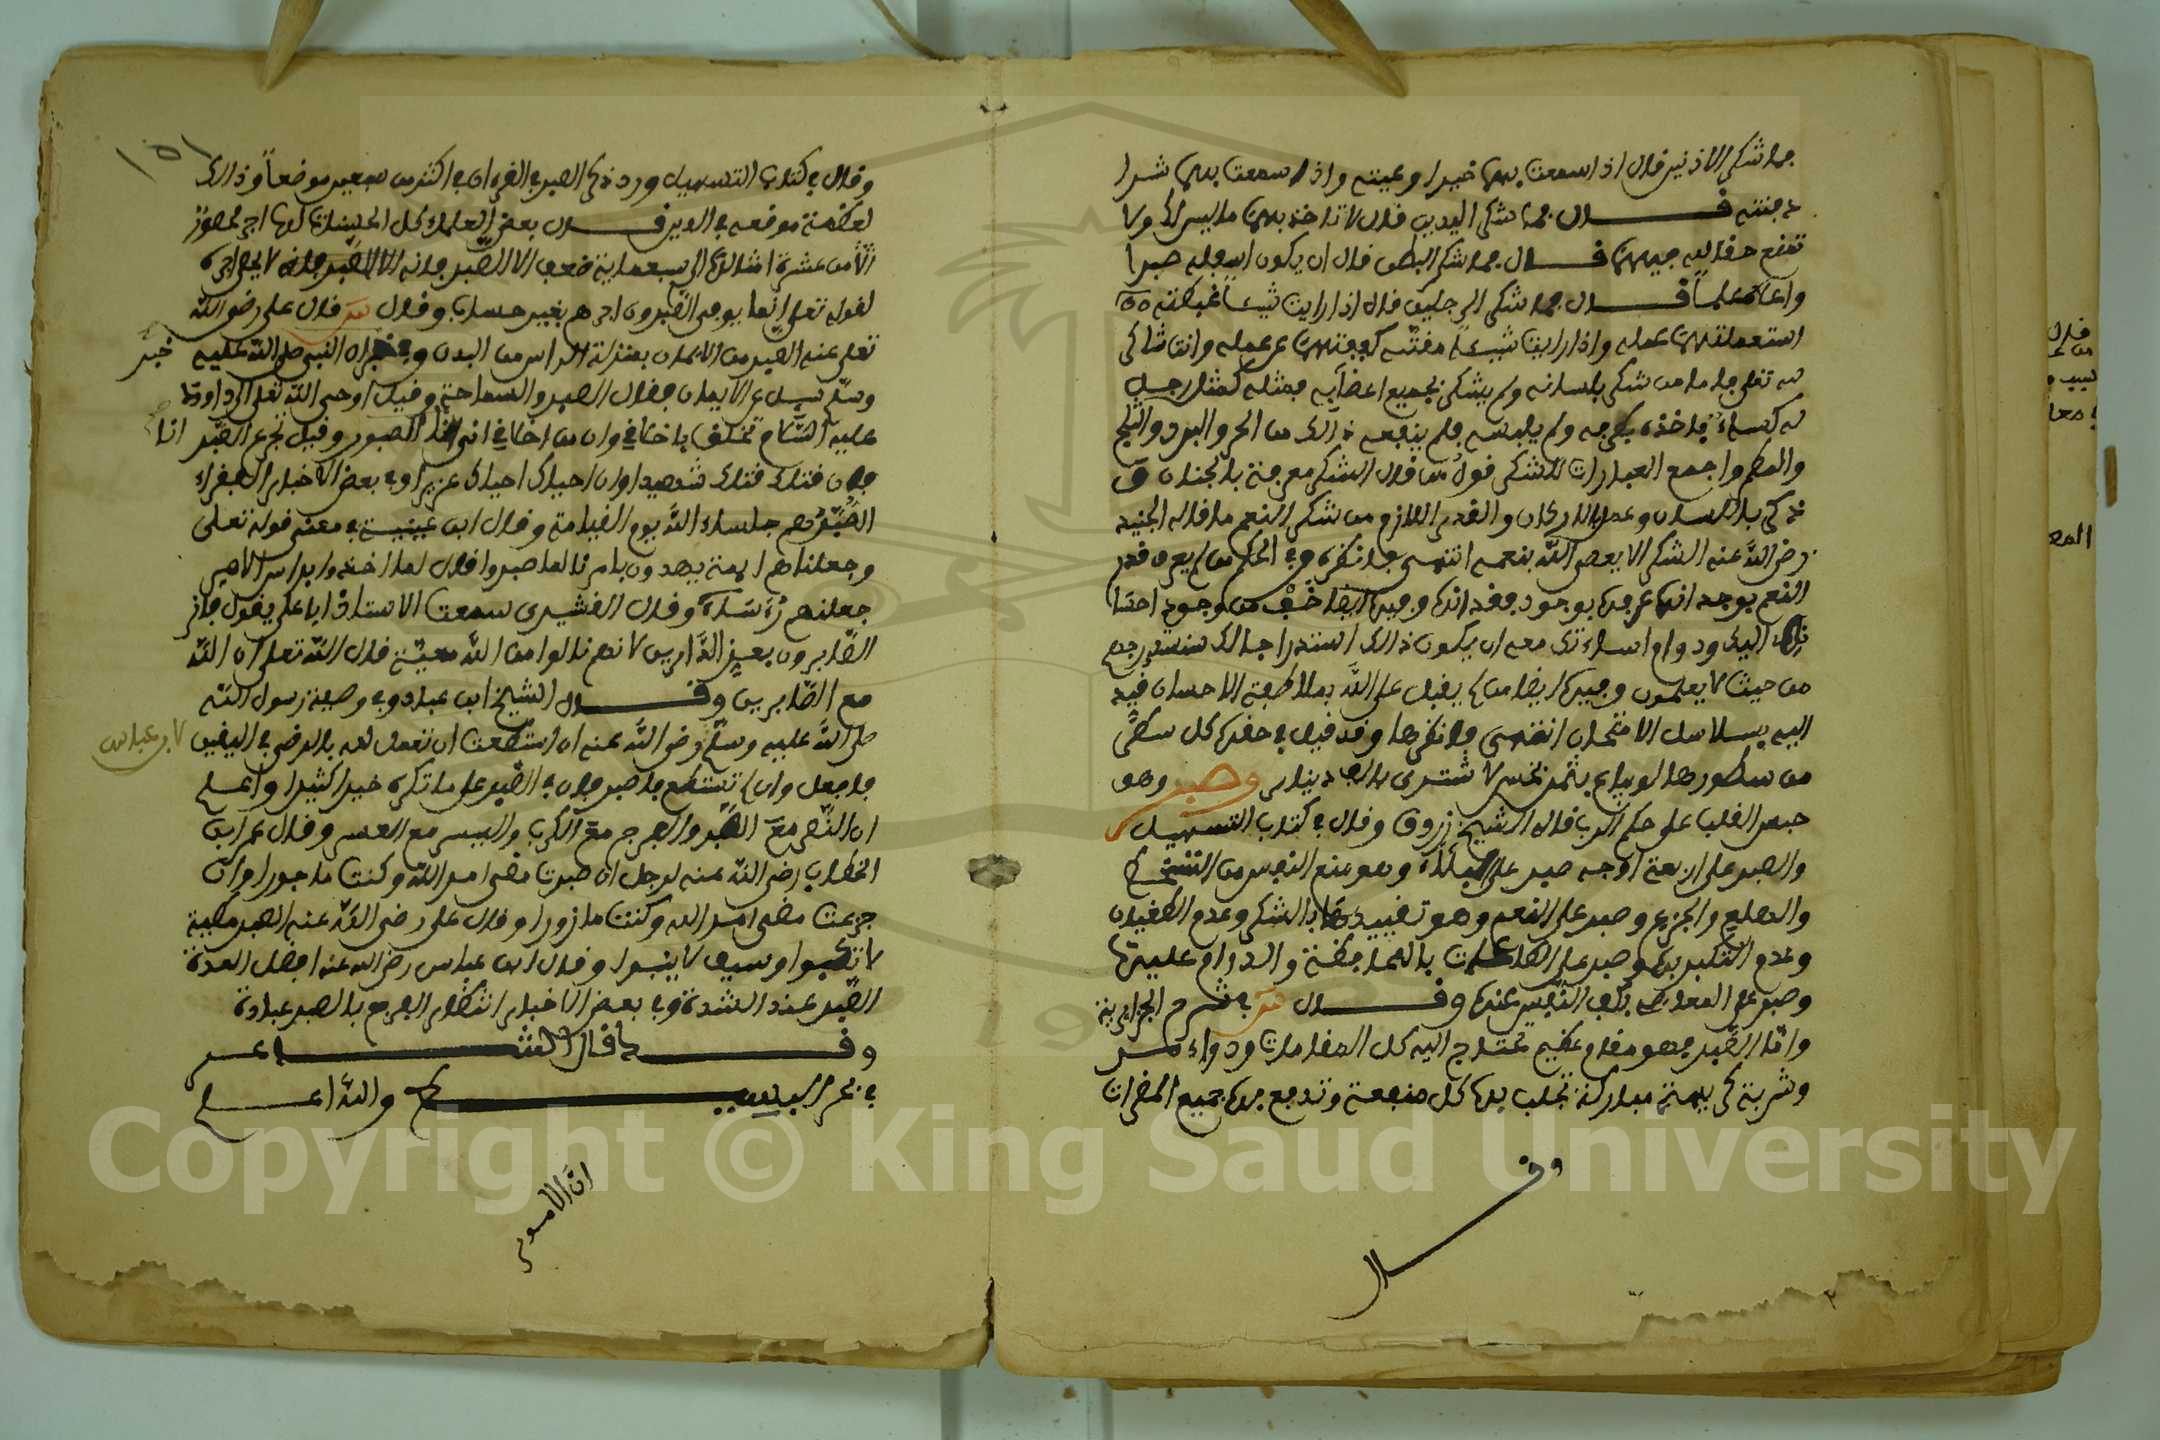 فما شكر الاذنين قال اذا سمعت بهما خيرا وعيته واذا سمعت بهما شرا
دفنته قال فما شكر اليدين قال لا تاخذ بهما ما ليس لك ولا
تمنع حقا لله فيهما قال فما شكر البطن قال ان يكون اسفله صبرا
واعلاه علما قال فما شكر الرجلين قال اذا رايت شيئا غبطته
استعملتهما عمله واذا رايت شيئا مقته كففتهما عن عمله وانت شاكر
لله تعلى فاما من شكر بلسانه ولم يشكر بجميع اعضايه فمثله كمثل رجل
له كساء فاخذه بطرفه ولم يلبسه فلم ينفعه ذالك من الحر والبرد والثلج
والمطر واجمع العبارات للشكر قول من قال الشكر معرفة بالجنان و
ذكر باللسان وعمل بالاركان والقدر اللازم من شكر النعم ما قاله الجنيد
رضي الله عنه الشكر الا يعصى الله بنعمه انتهى وفي الحكم من لم يعرف قدر
النعم بوجدانها عرفها بوجود فقدانها وفيها ايضا خف من وجود احسا
نه اليك ودوام اساءتك معه ان يكون ذالك استدراجا لك سنستدرجهم
من حيث لا يعلمون وفيها ايضا من لم يقبل على الله بملاطفة الاحسان قيد
اليه بسلاسل الامتحان انتهى وقد قيل في حقها كل سطر
من سطورها لو يباع بثمن بخس لاشترى بالف دينار وصبر وهو
حبس القلب على حكم الرب قاله الشيخ زروق وقال في كتاب التسهيل
والصبر على اربعة اوجه صبر على البلاء وهو منع النفس من التسخط
والهلع والجزع وصبر على النعم وهو تقييدها بالشكر وعدم الطغيان
وعدم التكبر بها وصبر على الطاعات بالمحافظة والدوام عليها
وصبر عن المعاصي بكف النفس عنها وقال في شرح الجزايرية
واما الصبر فهو مقام عظيم تحتاج اليه كل المقامات ودواء
وشربة كريهة مباركة تجلب بها كل منفعة وتدفع بها جميع المضرات
وقال
١٥١
وقال في كتاب التسهيل ورد ذكر الصبر في القرءان في اكثر من سبعين موضعا وذالك
لعظمة موقعه في الدين قال بعض العلماء كل الحسنات لها اجر محصور
من عشرة امثالها الى سبعماية ضعف الا الصبر فانه لا يحصر اجره
لقوله تعلى انما يوفى الصبرون اجرهم بغير حساب وقال قال علي رضي الله
تعلى عنه الصبر من الايمان بمنزلة الراس من البدن وفي خبر ان النبي صلى الله عليه
خبر
وسلم سيل عن الايمان فقال الصبر والسماحة وقيل اوحى الله تعلى الى داوود
عليه السلام تخلق باخلاقي وان من اخلاقي اني انا الصبور وقيل تجرع الصبر
انا
فان قتلك قتلك شهيدا وان احياك احياك عزيزا وفي بعض الاخبار الفقراء
الصبر هم جلساء الله يوم القيامة وقال ابن عيينة في معنى قوله تعلى
وجعلناهم ايمة يهدون بامرنا لما صبروا قال لما اخذوا براس الامر
جعلنهم رؤساء وقال القشيري سمعت الاستاذ ابا علي يقول فاز
الصابرون بعز الدارين لانهم نالوا من الله معيته قال الله تعلى ان الله
مع الصابرين وقال الشيخ ابن عباد وفي وصية رسول الله
صلى الله عليه وسلم رضي الله عنه ان استطعت ان تعمل لله بالرضى في اليقين
لابن عباس
فافعل وان لم تستطع فاصبر فان في الصبر على ما تكره خيرا كثيرا واعلم
ان النصر مع الصبر والفرج مع الكرب واليسر مع العسر وقال عمر ابن
الخطاب رضي الله عنه لرجل ان صبرت مضى امر الله وكنت ماجورا وان
جزعت مضى امر الله وكنت مازورا وقال علي رضي الله عنه الصبر مطية
لا تكبوا وسيف لا ينبوا وقال ابن عباس رضي الله عنه افضل العدة
الصبر عند الشدة وفي بعض الاخبار انتظار الفرج بالصبر عبادة
وقال الشاعر
في بحر البسيط والله اعلم
ان الامور
Copyright © King Saud University